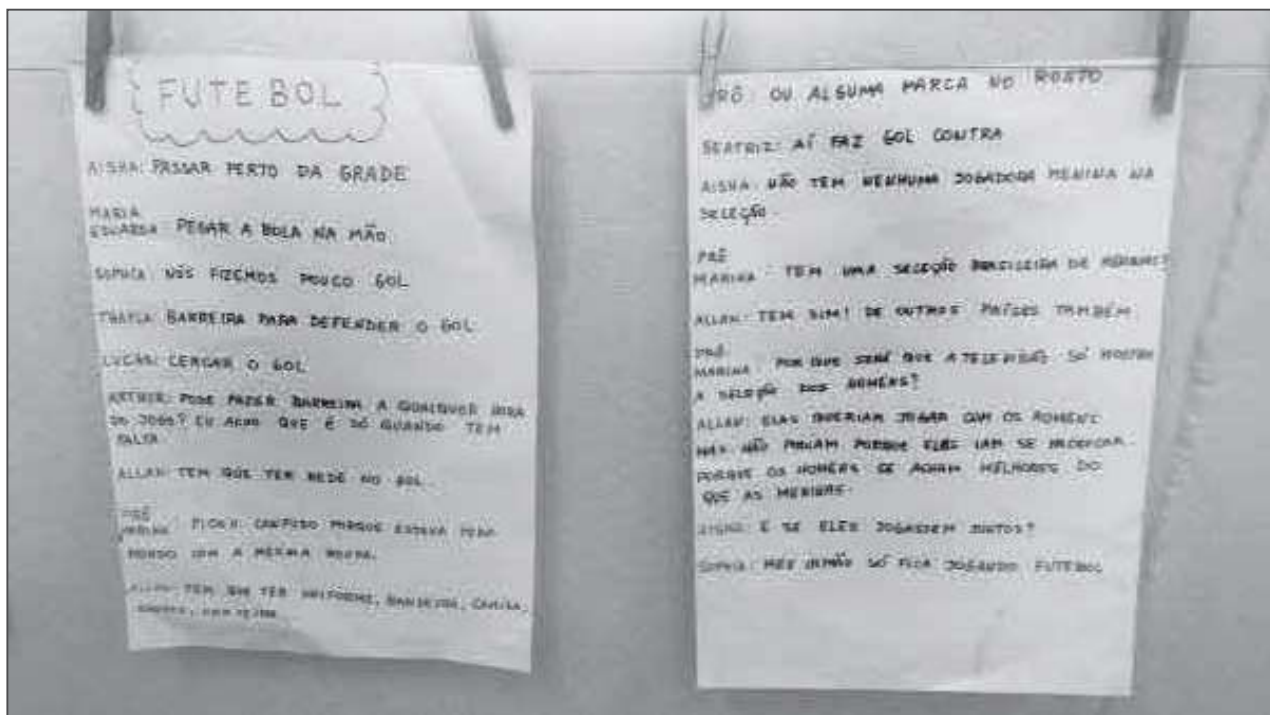 FUTEBOL
AISHA: PASSAR PERTO DA GRADE
MARIA
EDUARDA: PEGAR A BOLA NA MÃO
SOPHIA: NÓS FIZEMOS POUCO GOL
THAYLA: BARREIRA PARA DEFENDER O GOL
LUCAS: CERCAR O GOL
ARTHUR: PODE FAZER BARREIRA A QUALQUER HORA
DO JOGO? EU ACHO QUE É SÓ QUANDO TEM
FALTA
ALLAN: TEM QUE TER REDE NO GOL.
PRÔ
MARINA: FICOU CONFUSO PORQUE ESTAVA TODO
MUNDO COM A MESMA ROUPA.
ALLAN: TEM QUE TER UNIFORME, BANDEIRA, CAMISA,
PRÔ: OU ALGUMA MARCA NO ROSTO
BEATRIZ: AÍ FAZ GOL CONTRA
AISHA: NÃO TEM NENHUMA JOGADORA MENINA NA
SELEÇÃO.
PRÔ
MARINA: TEM UMA SELEÇÃO BRASILEIRA DE MENINAS
ALLAN: TEM SIM! DE OUTROS PAÍSES TAMBÉM
PRÔ
MARINA: POR QUE SERÁ QUE A TELEVISÃO SÓ MOSTRA
A SELEÇÃO DOS HOMENS?
ALLAN: ELAS QUERIAM JOGAR COM OS HOMENS
MAS NÃO PODIAM PORQUE ELES IAM SE
PORQUE OS HOMENS SE ACHAM MELHORES DO
QUE AS MENINAS.
AISHA: E SE ELES JOGASSEM JUNTOS?
SOPHIA: MEU IRMÃO SÓ FICA JOGANDO FUTEBOL